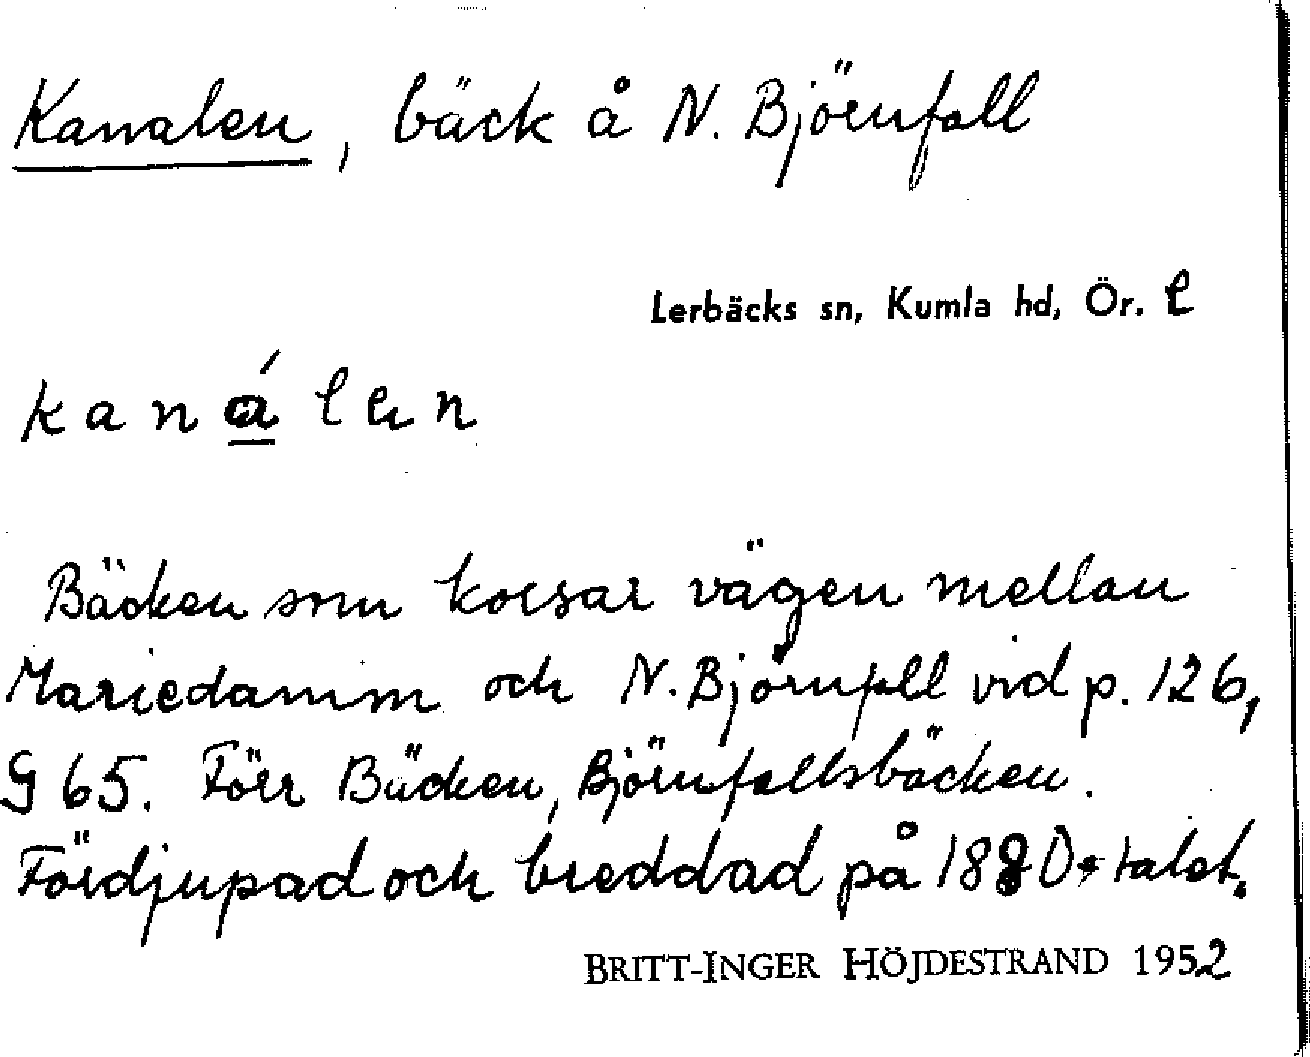 Kanalen, bäck å N. Björnfall
Lerbäcks sn, Kumla hd, Ör. l
kanálen
Bäcken som korsar vägen mellan
Mariedamm och N. Björnfall vid p. 126,
G 65. Förr Bäcken, Björnfallsbäcken.
Fördjupad och breddad på 1880-talet.
BRITT-INGER HÖJDESTRAND 1952